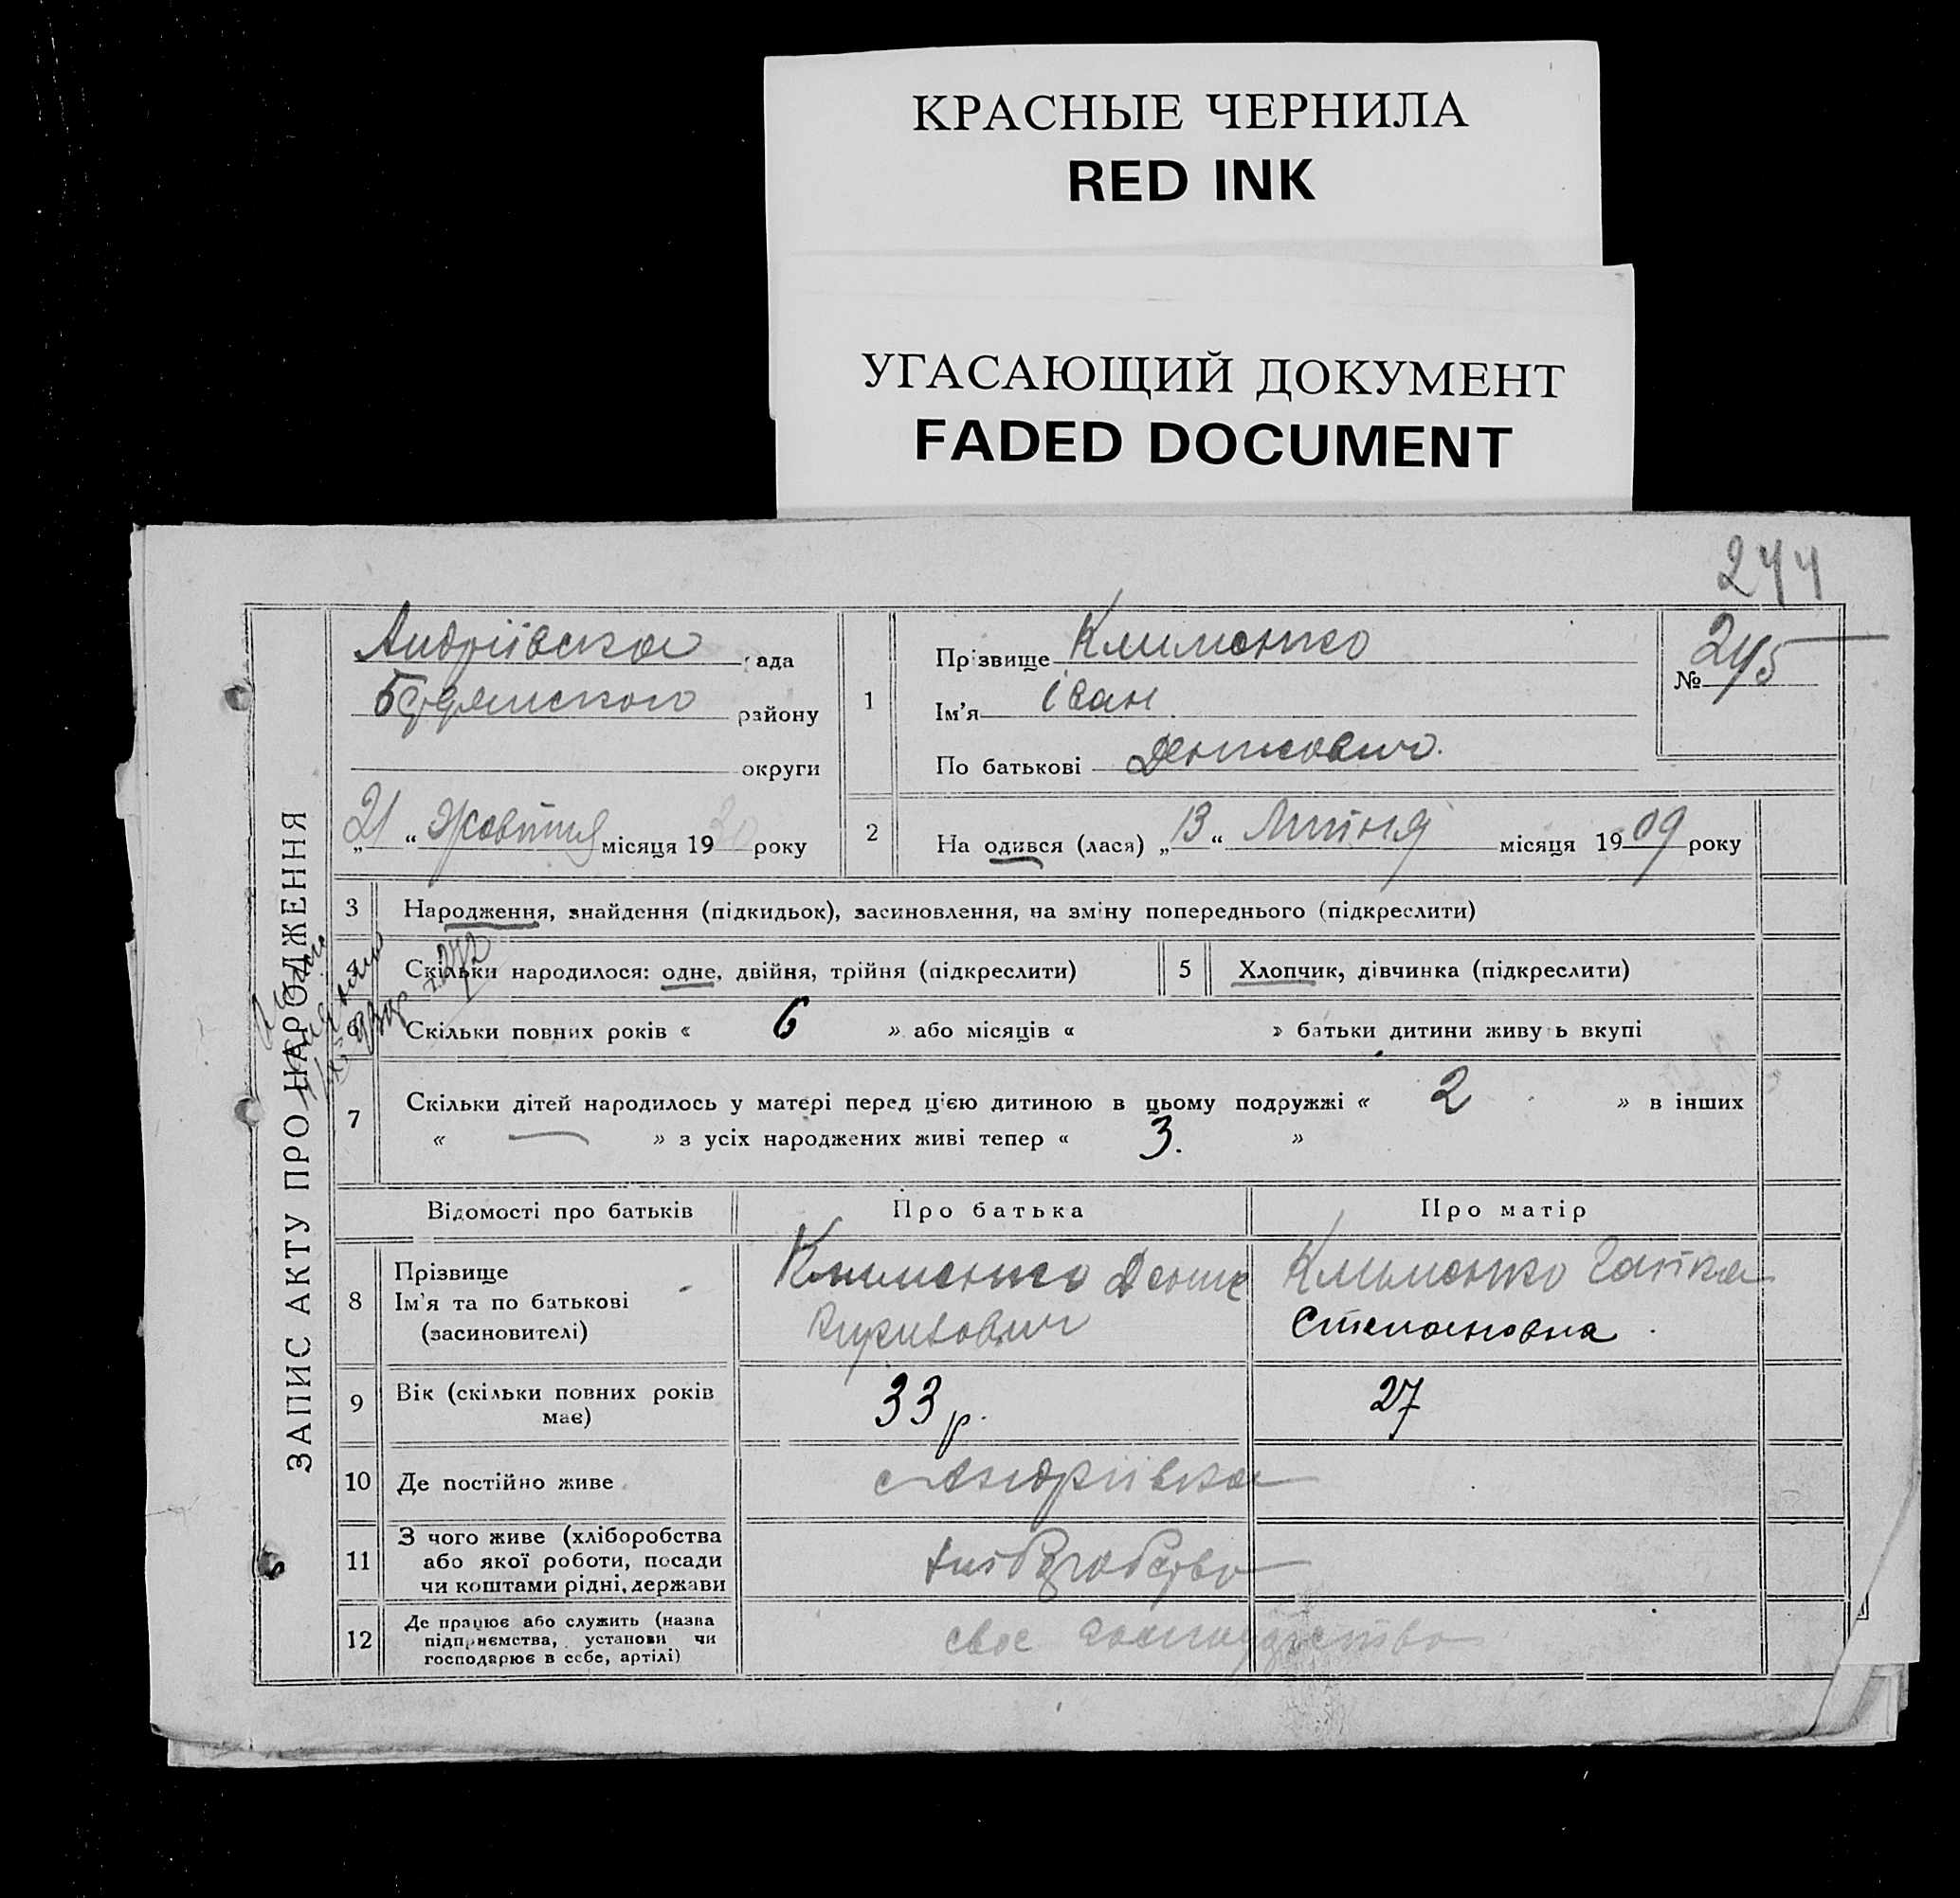 КРАСНЫЕ ЧЕРНИЛА
RED INK
УГАСАЮЩИЙ ДОКУМЕНТ
FADED DOCUMENT
244
ЗАПИС АКТУ ПРО НАРОДЖЕННЯ
Андріївска рада
району
округи
„21“ Жовтня місяця 1930 року
1
Прізвище Клименко
Ім'я Іван
По батькові Денисович.
№ 245
2
На одився (лася) „13“ Липня місяця 1909 року
3 Народження, знайдення (підкидьок), засиновлення, на зміну попереднього (підкреслити)
Скільки народилося: одне, двійня, трійня (підкреслити)
5 Хлопчик, дівчинка (підкреслити)
6 Скільки повних років « 6 » або місяців « » батьки дитини живуть вкупі
7 Скільки дітей народилось у матері перед цією дитиною в цьому подружжі « 2 » в інших
« — » з усіх народжених живі тепер « 3. »
Відомості про батьків Про батька Про матір
8 Прізвище
Ім'я та по батькові
(засиновителі)
Клименко Денис
Клименко Гапка
Степановна
9 Вік (скільки повних років
має)
33 р.
27
10 Де постійно живе
с Андріївка
11 З чого живе (хліборобства
або якої роботи, посади
чи коштами рідні, держави
хліборобство
12 Де працює або служить (назва
підприємства, установи чи
господарює в себе, артілі)
своє господарство